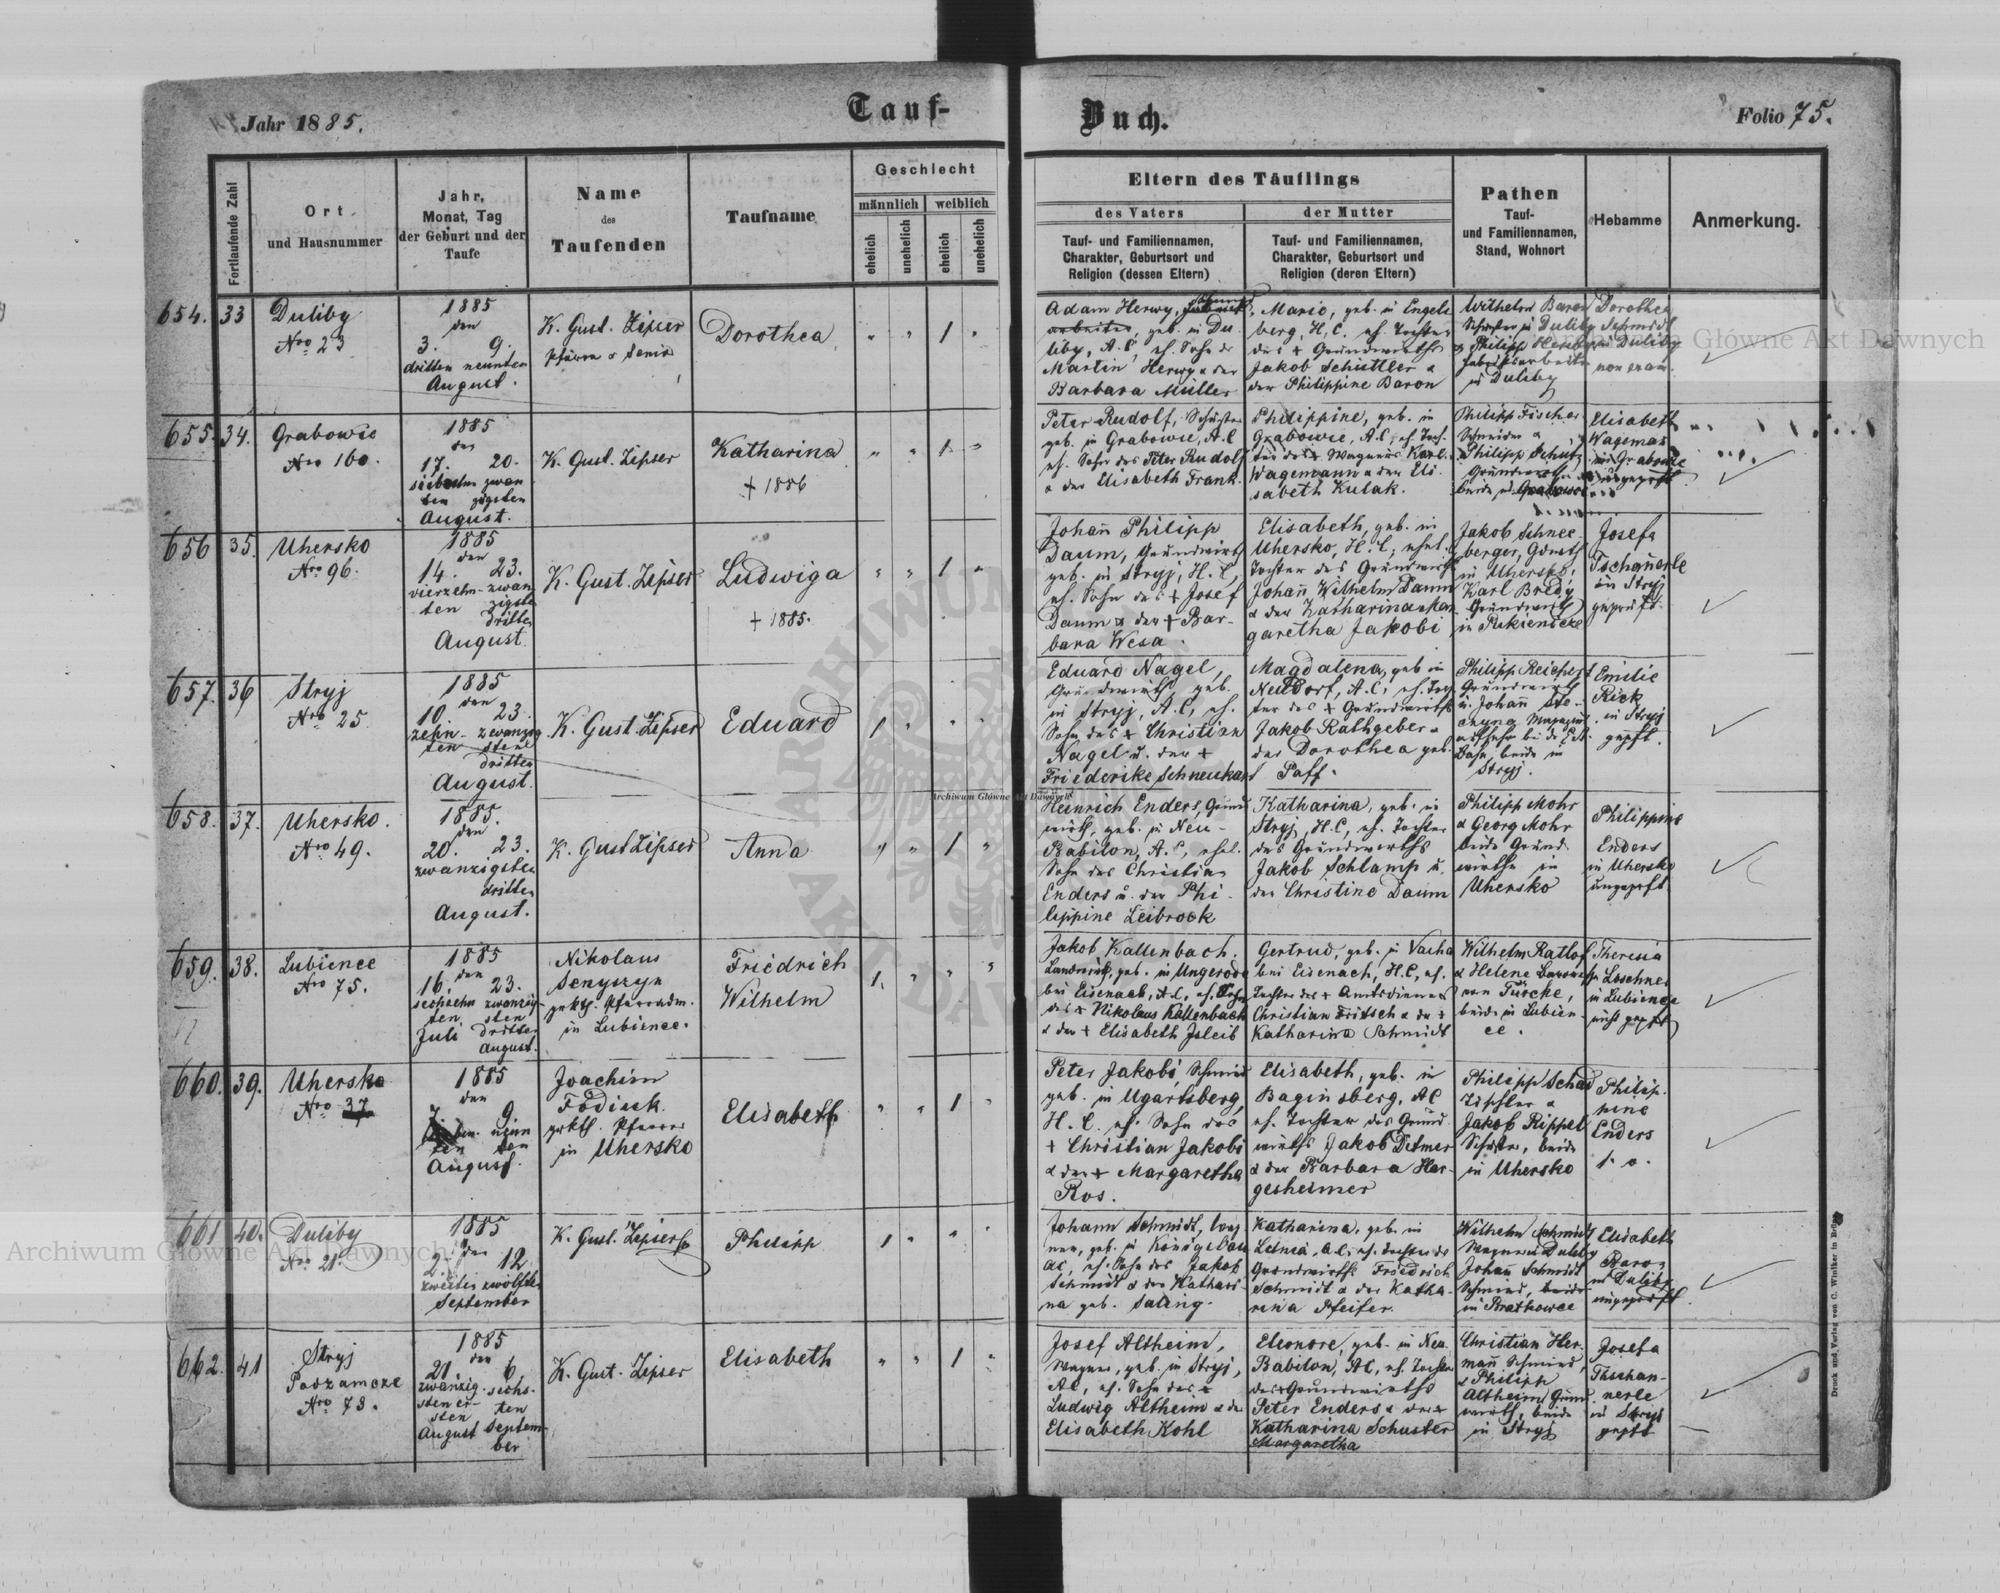 Jahr 1885.
Tauf-
Buch.
Folio 75.
Fortlaufende Zahl
Ort
und Hausnummer
Jahr,
Monat, Tag
der Geburt und der
Taufe
Name
des
Taufenden
Taufname
Geschlecht
männlich
weiblich
ehelich
unehelich
ehelich
unehelich
Eltern des Täuflings
des Vaters
der Mutter
Tauf- und Familiennamen,
Charakter, Geburtsort und
Religion (dessen Eltern)
Tauf- und Familiennamen,
Charakter, Geburtsort und
Religion (deren Eltern)
Pathen
Tauf-
und Familiennamen,
Stand, Wohnort
Hebamme
Anmerkung.
654. 33
Duliby
Nro 23
1885
den
3. 9.
dritten neunten
August.
K. Gust. Zipser
Pfarrer & Senior
Dorothea
" " 1 "
Adam Herwy,
geb. in Du-
liby, A.C., eh. Sohn des
Martin Herwy & der
Barbara Müller
Maria, geb. in Engels-
berg, H.C. eh. Tochter
des + Grundwirths
Jakob Schüttler &
der Philippine Baron
Wilhelm Baron
Schuster in Duliby
& Philipp Herwy
Fabriksarbeiter
in Duliby
Dorothea
Schmidt
in Duliby
non exam.
655. 34.
Grabowce
Nro 160.
1885
den
17. 20.
siebzehn- zwan-
ten zigsten
August.
K. Gust. Zipser
Katharina
+ 1886
" " 1 "
Peter Rudolf, Schuster
geb. in Grabowce, A.C
eh. Sohn des Peter Rudolf
& der Elisabeth Frank.
Philippine, geb. in
Grabowce, A.C., eh. Toch-
ter des Wagners Karl
Wagemann & der Eli-
sabeth Kulak.
Philipp Fischer
Schneider &
Philipp Schutz
Grundwirth
beide in Grabowce
Elisabeth
Wageman
in Grabowce
ungeprft
656 35.
Uhersko
Nro 96.
1885
den
14. 23.
vierzehn- zwan-
ten zigsten
dritten
August.
K. Gust. Zipser
Ludwiga
+ 1885.
" " 1 "
Johann Philipp
Daum, Grundwirth
geb. in Stryj, H.C.,
eh. Sohn des + Josef
Daum & der + Bar-
bara Wesa.
Elisabeth, geb. in
Uhersko, H.C., ehel.
Tochter des Grundwirths
Johann Wilhelm Daum
& der Katharina Mar-
garetha Jakobi
Jakob Schnee-
berger, Grundw.
in Uhersko,
Karl Bredy
Grundwirth
in Pukienicze
Josefa
Tschanerle
in Stryj
geprüft.
657. 36
Stryj
Nro 25.
1885
den
10. 23.
zehn- zwanzig-
ten sten
dritten
August.
K. Gust. Zipser
Eduard
1 " " "
Eduard Nagel,
Grundwirth geb.
in Stryj, A.C., eh.
Sohn des + Christian
Nagel u. der +
Friederike Schneickart
Magdalena, geb. in
Neudorf, A.C., eh. Toch-
ter des + Grundwirths
Jakob Rathgeber &
der Dorothea geb.
Paff.
Philipp Reichert
Grundwirth
u. Johann
Magazins
aufseher bei der
Bahn beide in
Stryj.
Emilie
Rick
in Stryj
geprft.
658. 37.
Uhersko.
Nro 49.
1885.
den
20. 23.
zwanzigsten
dritten
August.
K. Gust Zipser
Anna
" " 1 "
Heinrich Enders, Grund-
wirth, geb. in Neu-
Babilon, A.C., ehel.
Sohn des Christian
Enders u. der Phi-
lippine Leibrock
Katharina, geb. in
Stryj, H.C., eh. Tochter
des Grundwirths
Jakob Schlamp u.
der Christine Daum
Philipp Mohr
& Georg Mohr
beide Grund-
wirthe in
Uhersko
Philippine
Enders
in Uhersko
ungeprft
659. 38.
Lubience
Nro 75.
1885
den
16. 23.
sechzehn zwanzig-
ten sten
Juli dritten
August.
Nikolaus
Senyszyn
grkth. Pfarradm.
in Lubience.
Friedrich
Wilhelm
1. " " "
Jakob Kallenbach.
Landwirth, geb. in Ungerode
bei Eisenach, A.C., eh. Sohn
des + Nikolaus Kallenbach
& der + Elisabeth Jsleib
Gertrud, geb. in Vacha
bei Eisenach, H.C., eh.
Tochter des + Amtsdieners
Christian Fritsch & der +
Katharina Schmidt
Wilhelm Ratlof
& Helene Baronesse
von Türcke,
beide in Lubien-
ce.
Theresia
Loschner
in Lubience
nicht geprft
660. 39.
Uhersko
Nro 37
1885
den
7. 9.
neun
ten ten
August.
Joachim
Fodiuk
grkth. Pfarrer
in Uhersko
Elisabeth
" " 1 "
Peter Jakobi Schmied
geb. in Ugartsberg,
H.C. eh. Sohn des
+ Christian Jakobi
& der + Margaretha
Ros.
Elisabeth, geb. in
Baginsberg, A.C
eh. Tochter des Grund-
wirths Jakob Ditmer
& der Barbara Har-
gesheimer
Philipp Schad
Tischler &
Jakob Rippel
Schuster, beide
in Uhersko
Philip-
pine
Enders
s. o.
661 40.
Duliby
Nro 21.
1885
den
2. 12.
zweiten zwölften
September
K. Gust. Zipser
Philipp
1 " " "
Johann Schmidt, Wag-
ner, geb. in Königsau
AC, eh. Sohn des Jakob
Schmidt & der Kathari-
na geb. Saling.
Katharina, geb. in
AC, eh. Tochter des
Grundwirths Friedrich
Schmidt & der Katha-
rina Pfeifer.
Wilhelm Schmidt
Wagner in Duliby
Johann Schmidt
Schmied, beide
in Bratkowce
Elisabeth
Baron
in Duliby
ungeprüft.
662. 41
Stryj
Podzamcze
Nro 73.
1885
den
21. 6.
zwanzig- sechs-
sten er- ten
sten
August Septem-
ber
K. Gust. Zipser
Elisabeth
" " 1 "
Josef Altheim,
Wagner, geb. in Stryj,
AC, eh. Sohn des +
Ludwig Altheim & der
Elisabeth Kohl
Eleonore, geb. in Neu-
Babilon, AC, eh. Tochter
des Grundwirths
Peter Enders & der +
Katharina Schuster
Margaretha
Christian Her-
mann Schmied,
& Philipp
Altheim Grund-
wirth, beide
in Stryj
Josefa
Tschan-
nerle
in Stryj
geprft
Druck und Verlag von C. Winiker in Brünn.
Archiwum Główne Akt Dawnych
Archiwum Główne Akt Dawnych
Główne Akt Dawnych